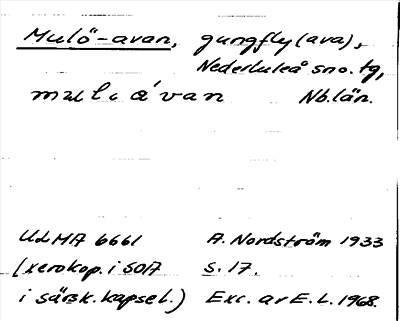 Mulö-avan, gungfly (ava),
Nederluleå sn o. tg,
Nb. län.
ULMA 6661 A. Nordström 1933
(xerokop. i SOA s. 17.
i särsk. kapsel.) Exc. av E. L. 1968.